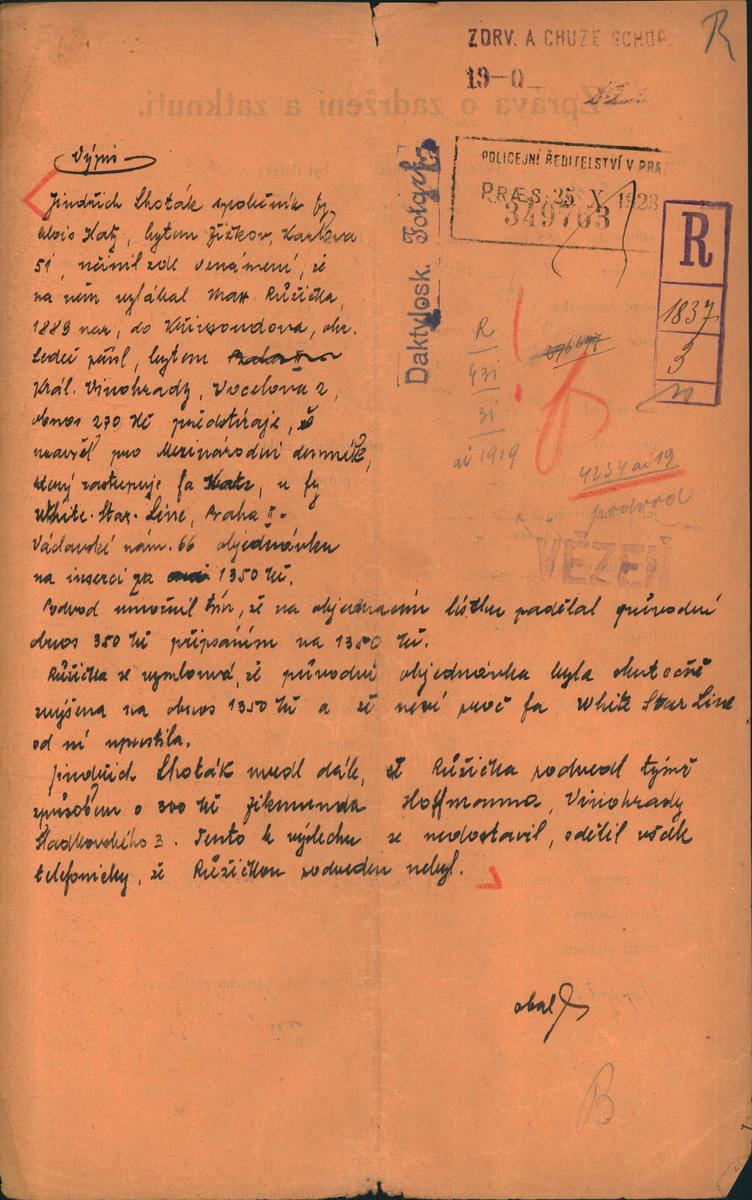 R
ZDRV. A CHŮZE SCHOP.
19-0
Daktylosk. Fotogr.
POLICEJNÍ ŘEDITELSTVÍ V PRA
PRÆS. 25 X 1923
349763
R
1837
3
R
431
31
ai 1919
4234 ai 19
podvod
VĚZEŇ
Výpis
Jindřich Lhoták společník fy
Alois Katz, bytem Žižkov, Karlova
51, učinil zde oznámení, že
na něm vylákal Max Růžička,
1889 nar., do
Ledeč přísl, bytem
Král. Vinohrady, Vocelova 2,
obnos 270 Kč předstíraje, že
uzavřel pro Mezinárodní
který zastupuje fa Katz, u fy
White-Star-Line, Praha II-
Václavské nám. 66 objednávku
na inserci za 1350 Kč.
Podvod umožnil tím, že na objednacím lístku padělal původní
obnos 350 Kč připsáním na 1350 Kč.
Růžička se vymlouvá, že původní objednávka byla skutečně
zvýšena na obnos 1350 Kč a že neví proč fa White Star Line
od ní upustila.
Jindřich Lhoták uvedl dále, že Růžička podvedl týmž
způsobem o 300 Kč Zikmunda Hoffmanna, Vinohrady
Hadkovského 3. Tento k výslechu se nedostavil, sdělil však
telefonicky, že Růžičkou podveden nebyl.
B